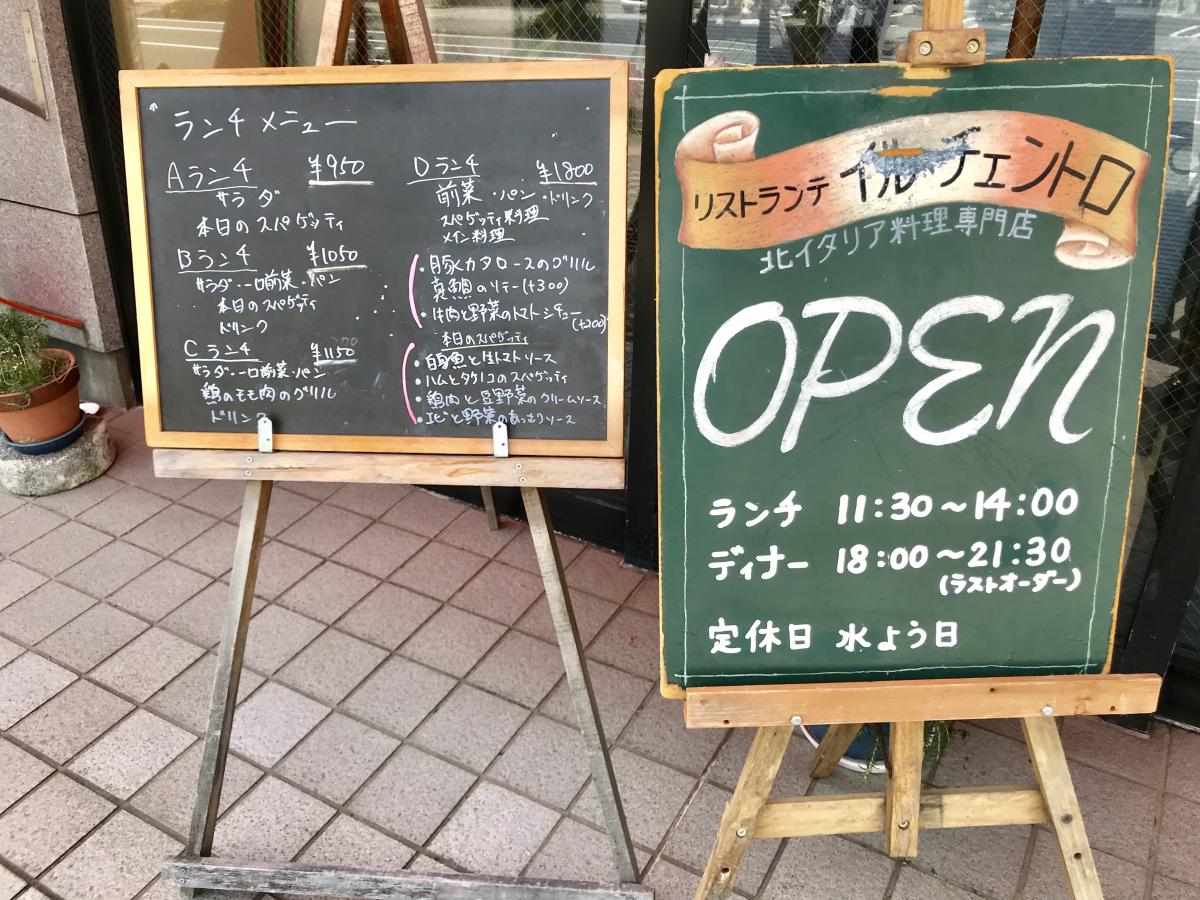 ランチメニュー
Aランチ ¥950
サラダ
本日のスパゲッティ
Bランチ ¥1050
サラダ・一口前菜・パン
本日のスパゲッティ
ドリンク
Cランチ ¥1150
サラダ・一口前菜・パン
鶏のモモ肉のグリル
ドリンク
Dランチ ¥1800
前菜・パン・ドリンク
スパゲッティ料理
メイン料理
・豚肩ロースのグリル
・真鯛のソテー(+300)
・牛肉と野菜のトマトシチュー
(+200)
本日のスパゲッティ
・白身魚と生トマトソース
・ハムとタケノコのスパゲッティ
・鶏肉と豆野菜のクリームソース
・エビと野菜のあっさりソース
リストランテ イル チェントロ
北イタリア料理専門店
OPEN
ランチ 11:30～14:00
ディナー 18:00～21:30
(ラストオーダー)
定休日 水よう日